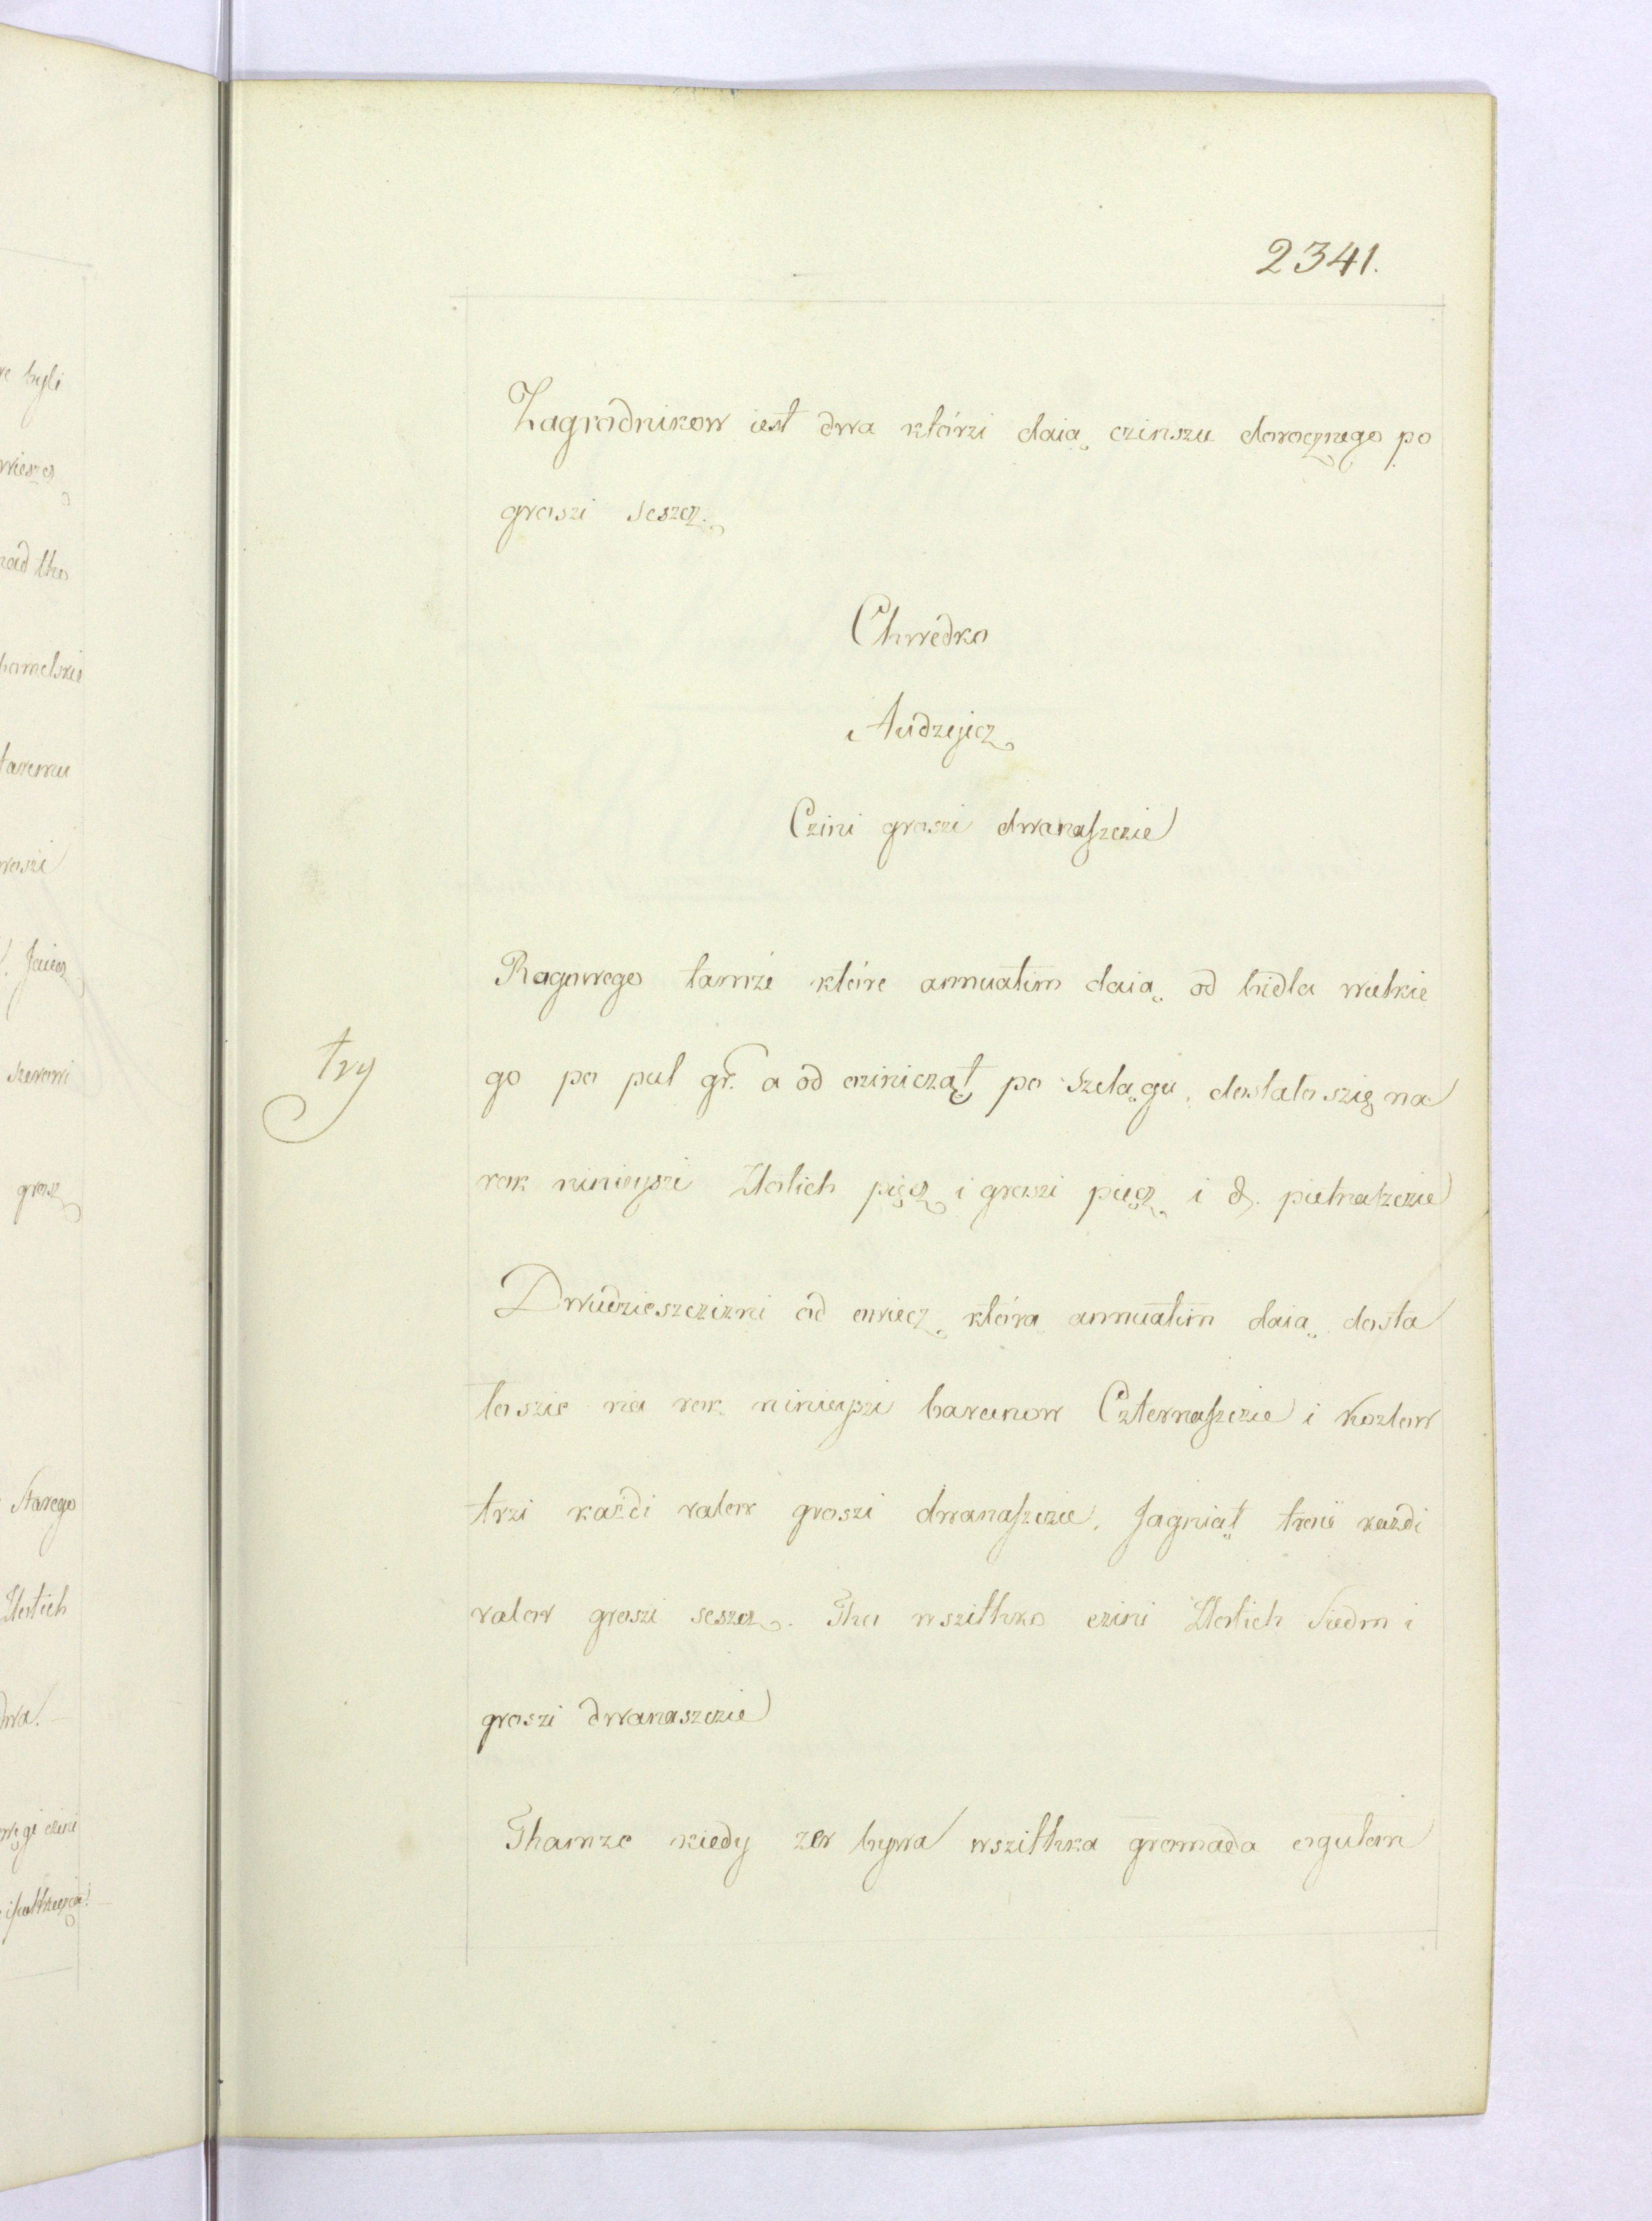 2341.
Zagrodnikow iest dwa którzi daią czinszu dorocznego po
groszi seszcz.
Chwedko
Audzejicz
Czini groszi dwanaszczie
Rogowego tamże które annuatim daią od bidla wielkie
go po pul gr. a od czinicząt po szelągu, dostalo szię na
try
rok ninieyszi Zlotich pięcz i groszi pięcz i d. pietnaszczie
Dwudzieszczizni od owiecz którą annuatim daią dosta
loszie na rok ninieyszi baranow Czternaszczie i kozlow
trzi każdi valor groszi dwanaszczie, Jagniąt troie każdi
valor groszi seszcz. Tho wszithko czini Zlotich Siedm i
groszi dwanaszczie
Thamze kiedy zer bywa wszithka gromada ogulem
re byli
wieszcz
nad tho
taremu
groszi
grosz
Starego
Zlotich
dwa.